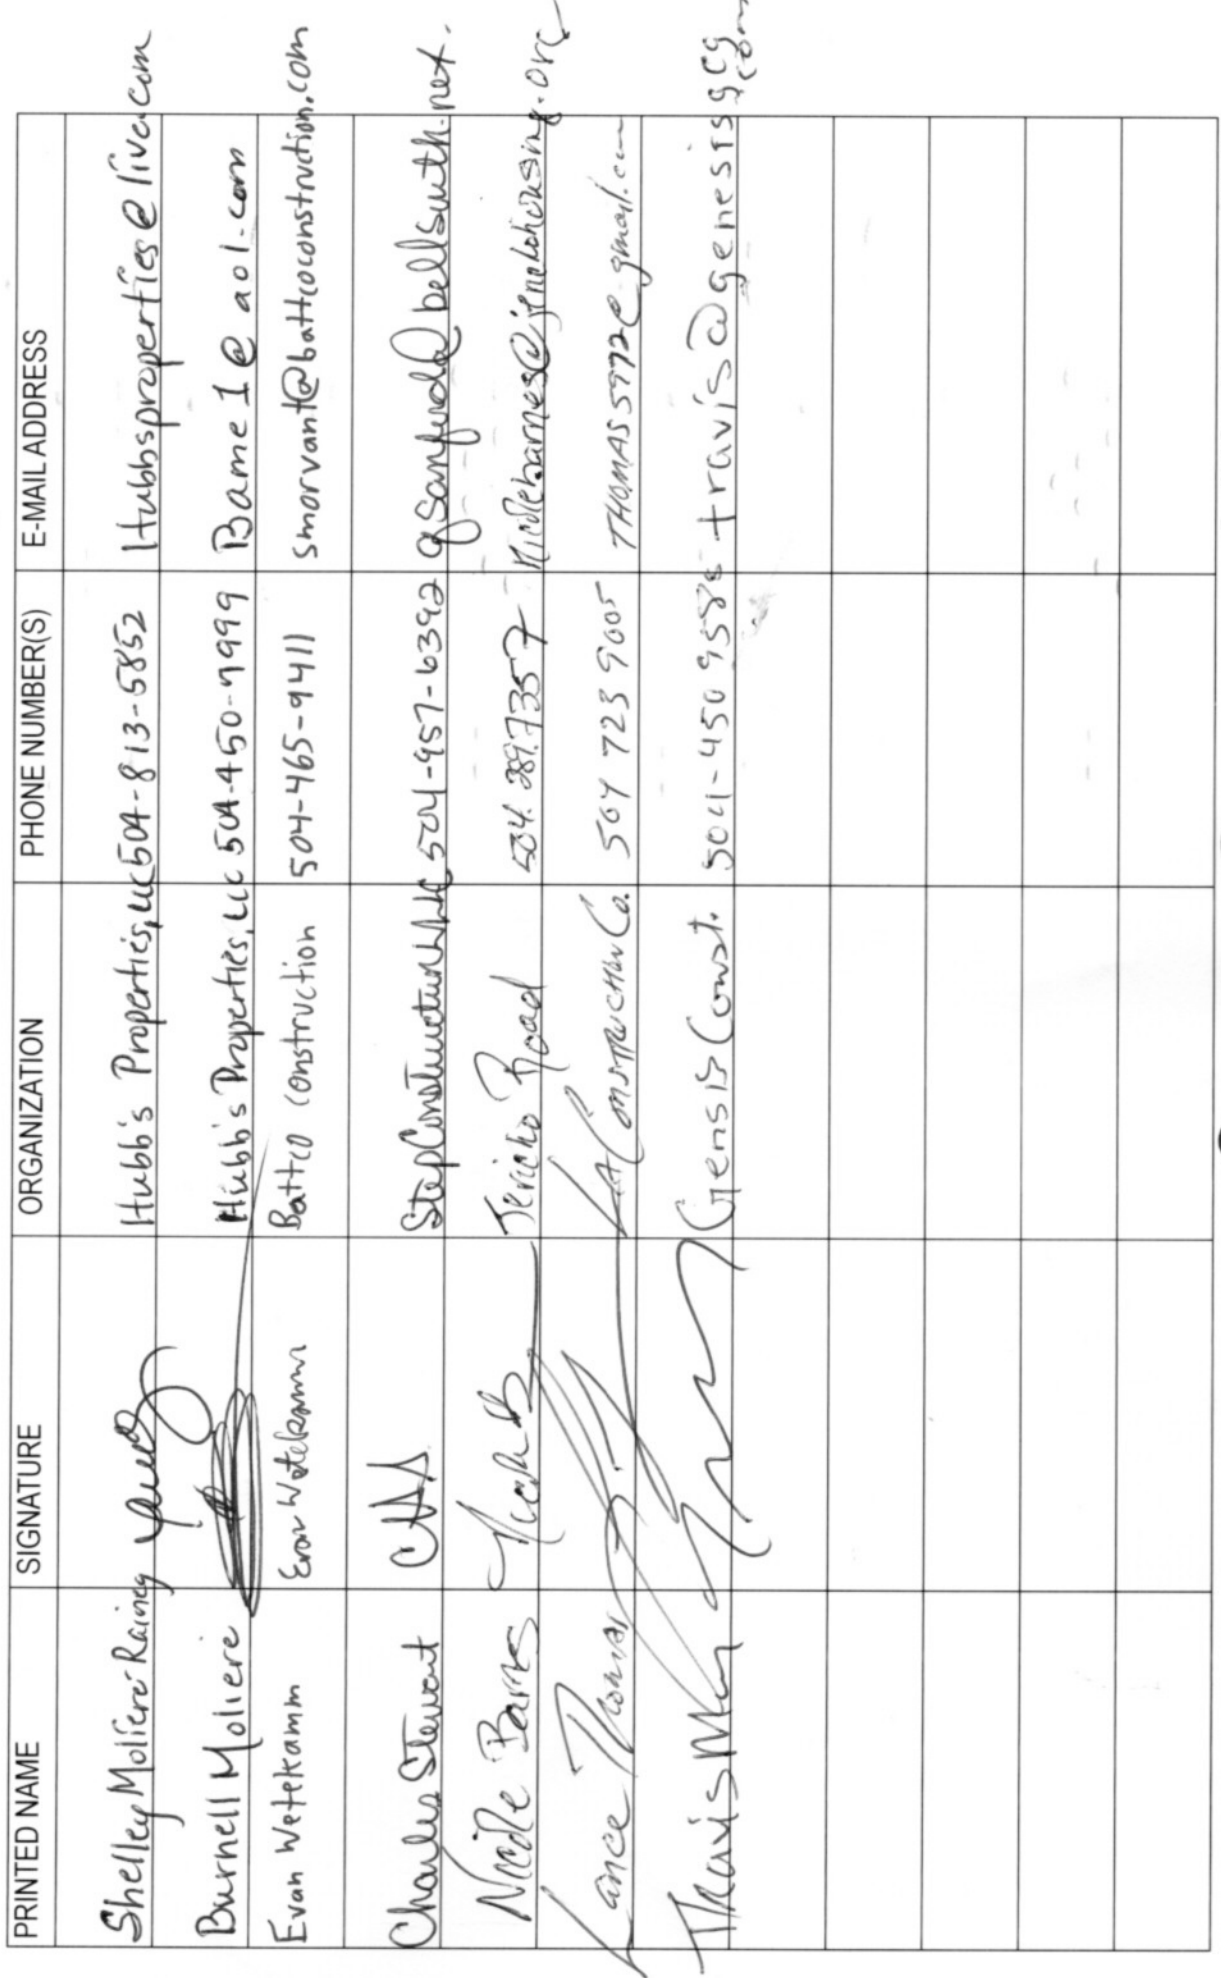 PRINTED NAME SIGNATURE ORGANIZATION PHONE NUMBER(S) E-MAIL ADDRESS
Shelley Moliere-Rainey Hubb's Properties, LLC 504-813-5852 Hubbsproperties@live.com
Burnell Moliere Hubb's Properties, LLC 504-450-9999 Bame1@aol.com
Evan Wetekamm Evan Wetekamm Battco Construction 504-465-9411 smorvant@battcoconstruction.com
Charles Stewart Step Construction 504-957-6392 bellsouth.net
Nicole Barnes Jericho Road nicolebarnes@jerichohousing.org
Lance Thomas LA Construction Co. 504 723 9005 THOMAS5972@gmail.com
Travis Genesis Const. 504-450 travis@genesisgcg.com